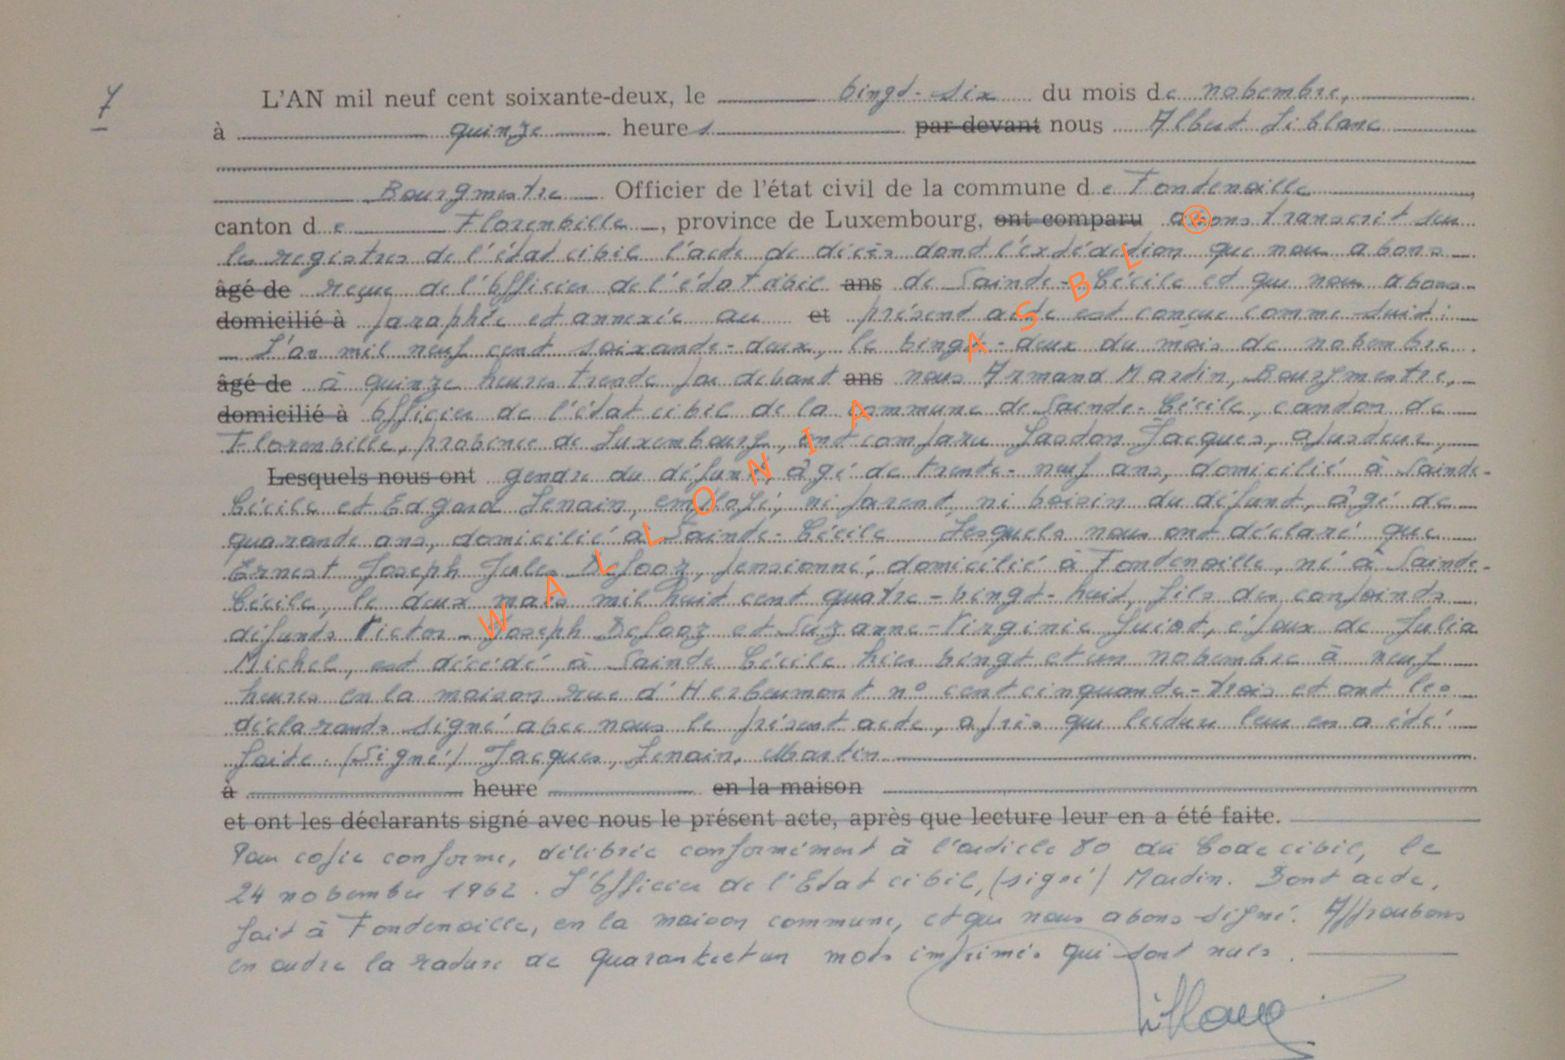 7
L'AN mil neuf cent soixante-deux, le vingt-six du mois de novembre,
à quinze heures par devant nous Albert Liblanc
Bourgmestre Officier de l'état civil de la commune de Fontenoille
canton de Florenville, province de Luxembourg, ont comparu avons transcrit sur
les registres de l'état civil l'acte de décès dont l'expédition que nous avons
âgé de reçue de l'Officier de l'état civil ans de Sainte-Cécile et que nous avons
domicilié à paraphée et annexée au et présent acte est conçue comme suit :
L'an mil neuf cent soixante-deux, le vingt-deux du mois de novembre
âgé de à quinze heures trente par devant ans nous Armand Martin, Bourgmestre,
domicilié à Officier de l'état civil de la commune de Sainte-Cécile, canton de
Florenville, province de Luxembourg, ont comparu Gaston Jacques, ajusteur,
Lesquels nous ont gendre du défunt, âgé de trente-neuf ans, domicilié à Sainte-
Cécile et Edgard Lenain, employé, ni parent, ni voisin du défunt, âgé de
quarante ans, domicilié à Sainte-Cécile Lesquels nous ont déclaré que
Ernest Joseph Jules Defooz, pensionné, domicilié à Fontenoille, né à Sainte-
Cécile, le deux mars mil huit cent quatre-vingt-huit, fils des conjoints
défunts Victor-Joseph Defooz et Suzanne-Virginie Guiot, époux de Julia
Michel, est décédé à Sainte Cécile hier vingt et un novembre à neuf
heures en la maison rue d'Herbeumont n° cent cinquante-trois et ont les
déclarants signé avec nous le présent acte, après que lecture leur en a été
faite. (Signé) Jacques, Lenain, Martin
à heure en la maison
et ont les déclarants signé avec nous le présent acte, après que lecture leur en a été faite.
Pour copie conforme, délivrée conformément à l'article 80 du Code civil, le
24 novembre 1962. L'Officier de l'Etat civil, (signé) Martin. Dont acte,
fait à Fontenoille, en la maison commune, et que nous avons signé. Approuvons
en outre la rature de quarante et un mots imprimés qui sont nuls.
WALLONIA ASBL ®